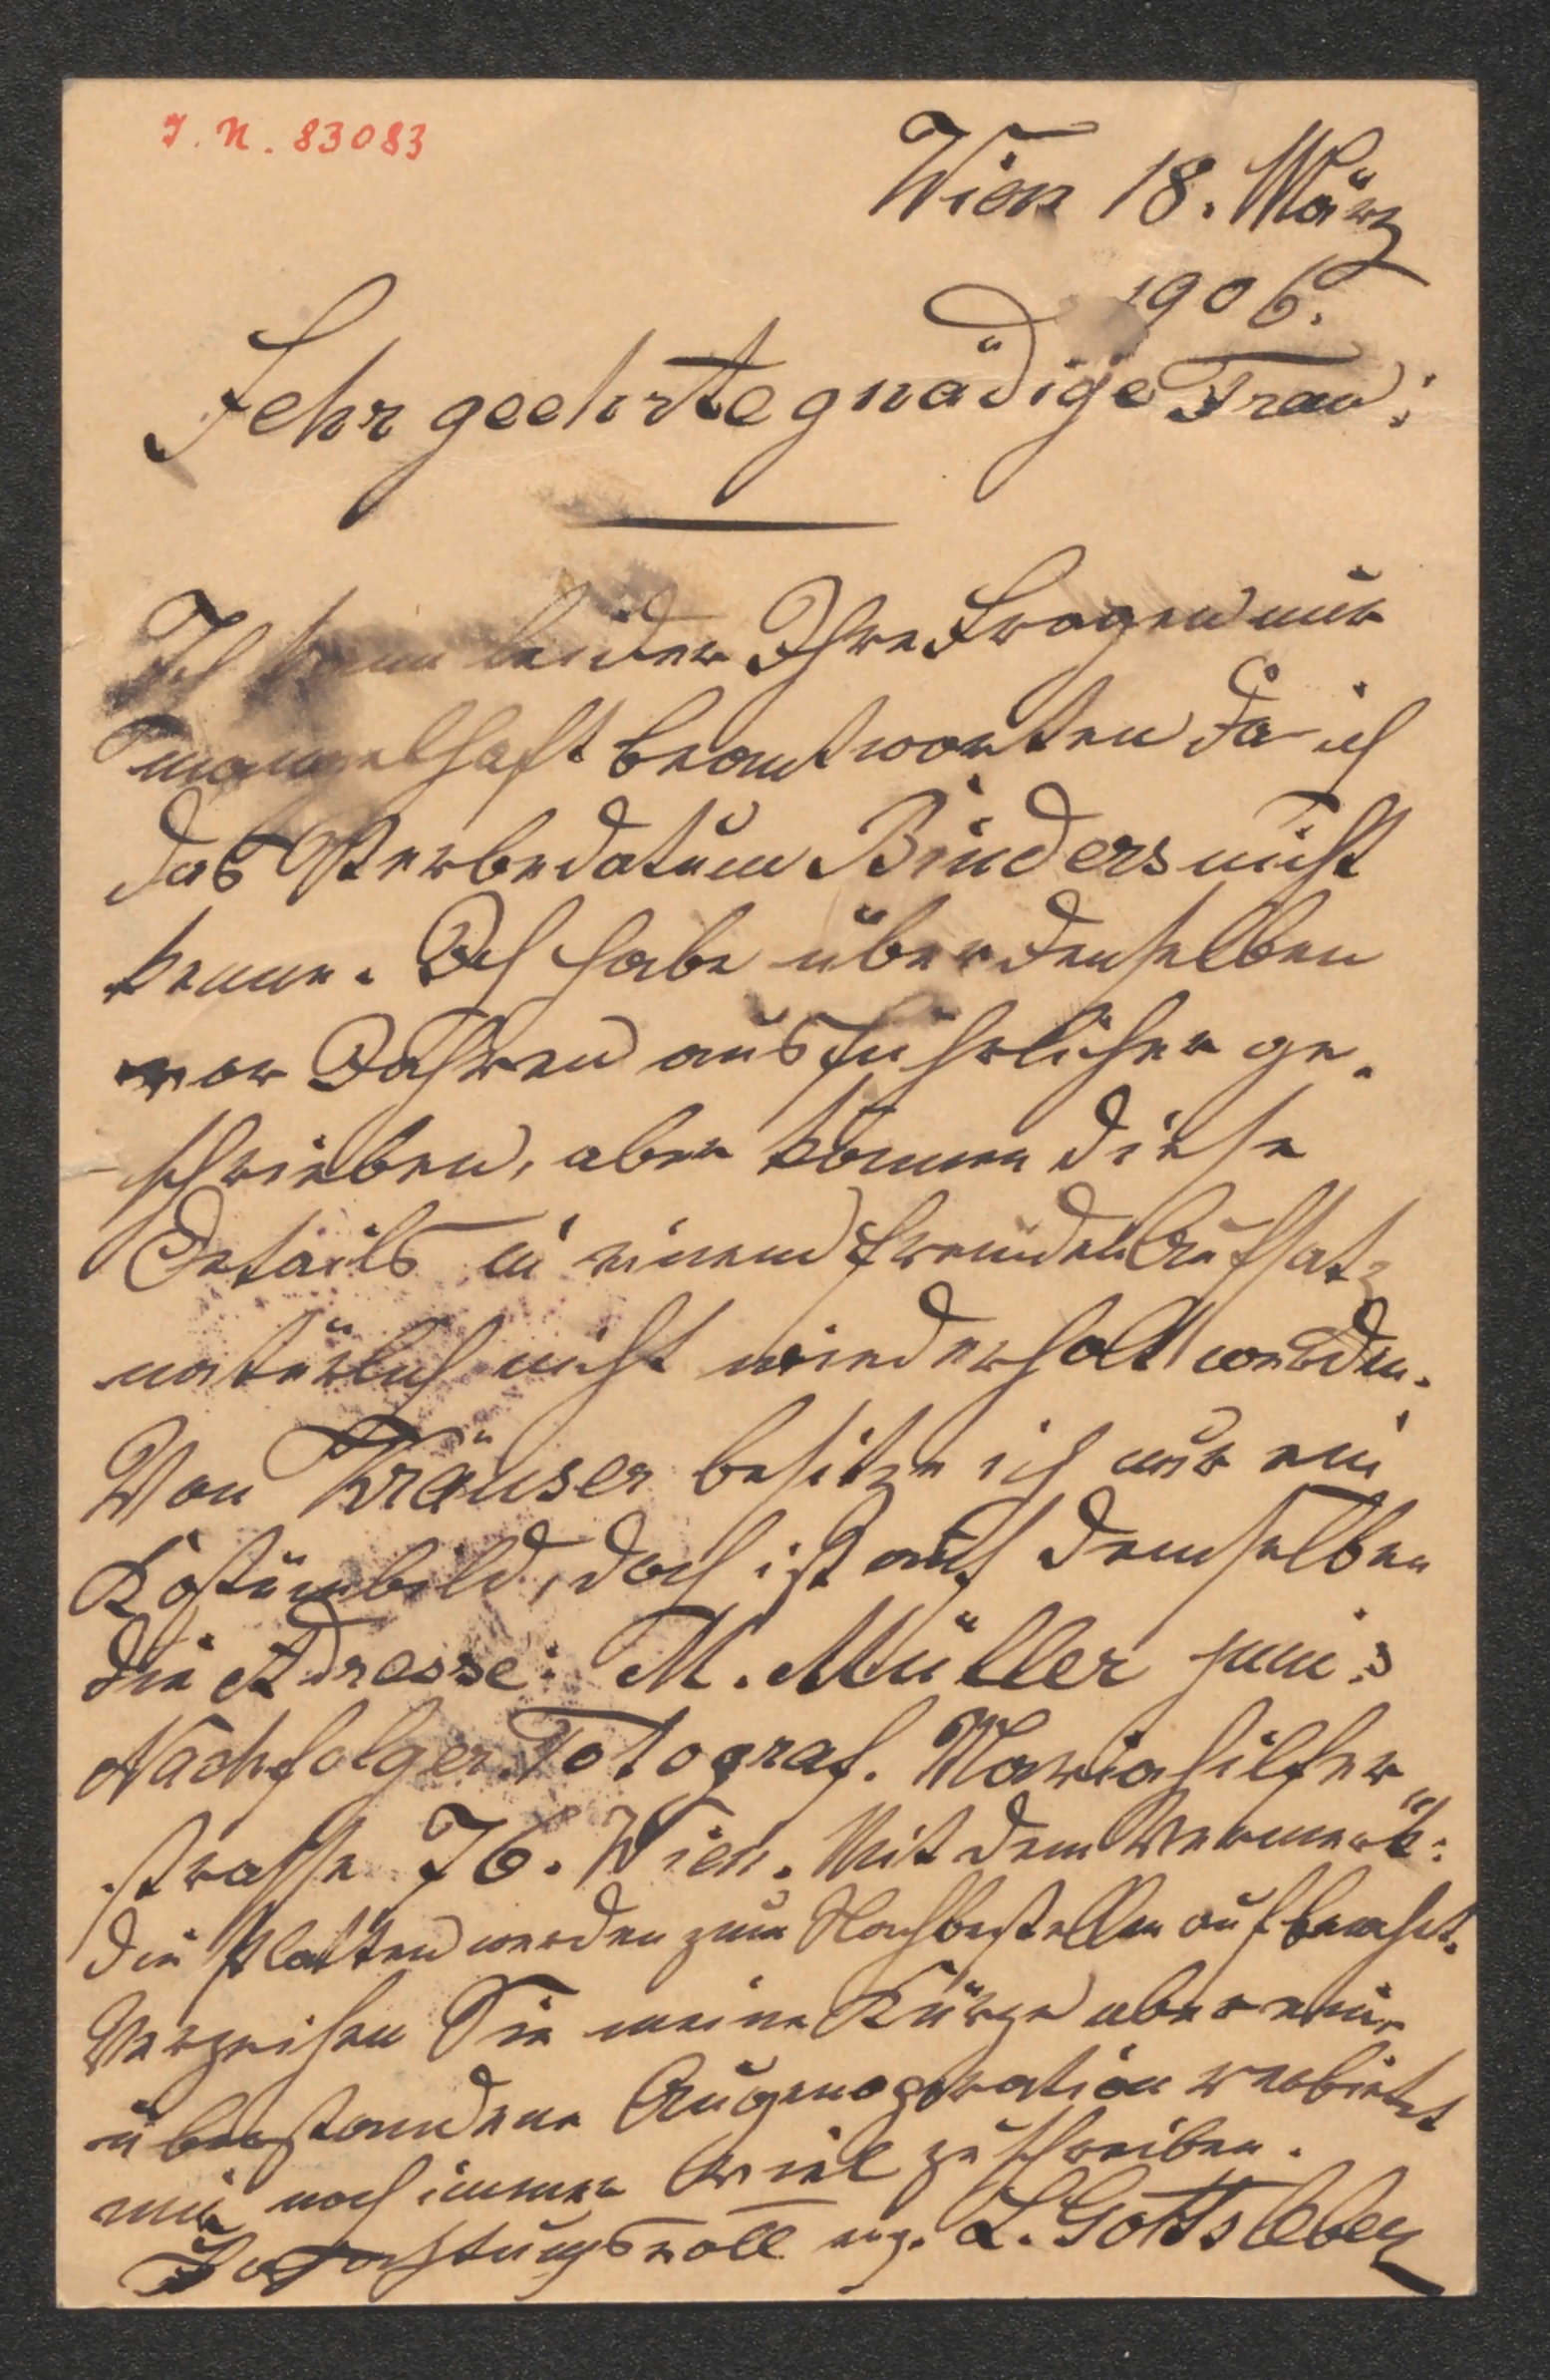 J. N. 83083
Wien 18. März
1906.
Sehr geehrte gnädige Frau:
Ich kann leider Ihre Fragen nur
mangelhaft beantworten da ich
das Sterbedatum Binders nicht
kenne. Ich habe über denselben
vor Jahren ausführlicher ge-
schrieben, aber können diese
Details in einem fremden Aufsatz
natürlich nicht wiederholt werden.
Von Kräuser besitze ich nur ein
Kostümbild, doch ist auf demselben
die Adresse: M. Müller jun:s
Nachfolger. Fotograf. Mariahilfer
strasse 76. Wien. Mit dem Vermerk:
die Platten werden zum Nachbestellen aufbewahrt.
Verzeihen Sie meine Kürze aber eine
überstandene Augenoperation verbietet
mir noch immer viel zu schreiben.
Hochachtungsvoll erg. L. Gottsleben